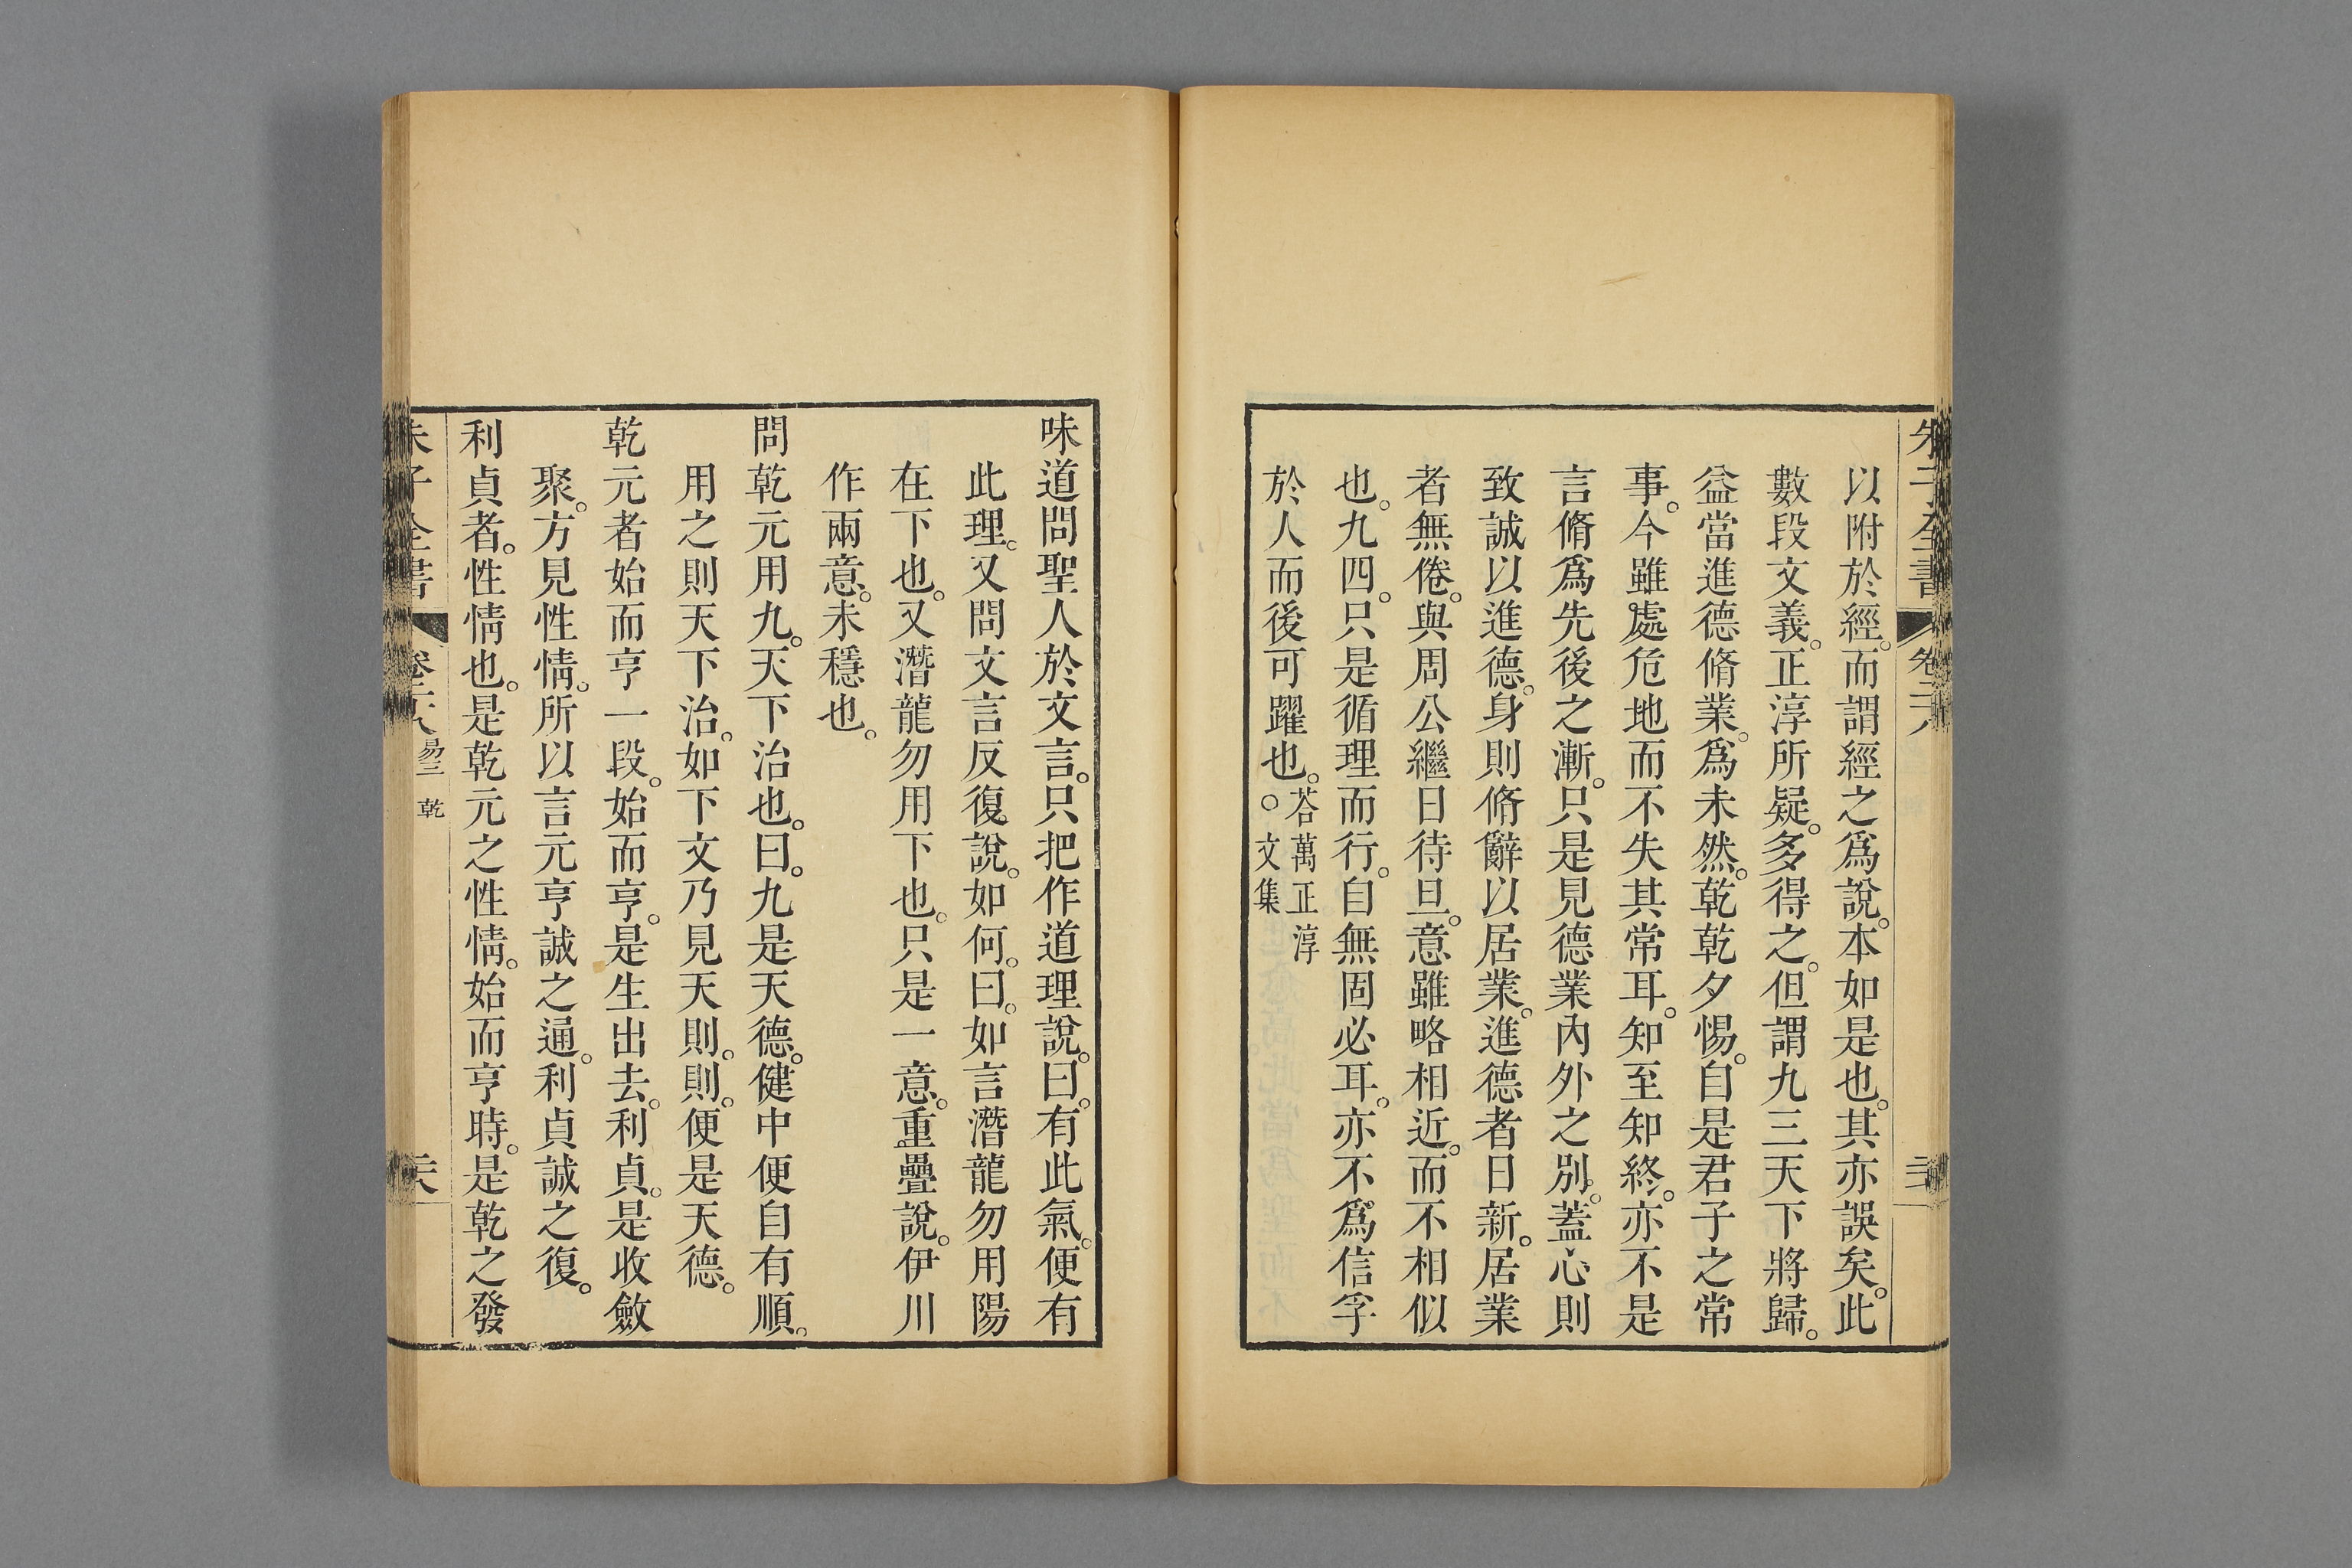 以附於經。而謂經之爲說。本如是也。其亦誤矣。此
數段文義。正淳所疑。多得之。但謂九三天下將歸。
益當進德脩業。爲未然。乾乾夕惕。自是君子之常
事。今雖處危地而不失其常耳。知至知終。亦不是
言脩爲先後之漸。只是見德業內外之別。蓋心則
致誠以進德。身則脩辭以居業。進德者日新。居業
者無倦。與周公繼日待旦。意雖略相近。而不相似
也。九四。只是循理而行。自無固必耳。亦不爲信孚
於人而後可躍也。○荅萬正淳
文集
味道問聖人於文言。只把作道理說。曰。有此氣。便有
此理。又問文言反復說。如何。曰。如言潛龍勿用陽
在下也。又潛龍勿用下也。只是一意。重疊說。伊川
作兩意。未穩也。
問乾元用九。天下治也。曰。九是天德。健中便自有順。
用之則天下治。如下文乃見天則。則。便是天德。
乾元者始而亨一段。始而亨。是生出去。利貞。是收斂
聚。方見性情。所以言元亨誠之通。利貞誠之復。
利貞者。性情也。是乾元之性情。始而亨時。是乾之發
朱子全書
易三 乾